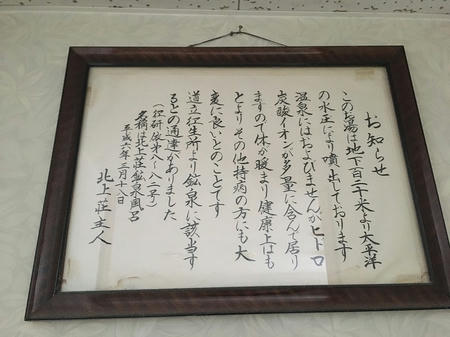 お知らせ
このお湯は地下百二十米より太平洋
の水圧により噴出しております
温泉にはおよびませんがヒドロ
炭酸イオンが多量に含んで居り
ますので体が暖まり健康上はも
とよりその他持病の方にも大
変に良いとのことです
道立衛生所より鉱泉に該当す
るとの通達がありました
(衛研依第八八二号)
名称は北上荘鉱泉風呂
平成六年三月十八日
北上荘主人